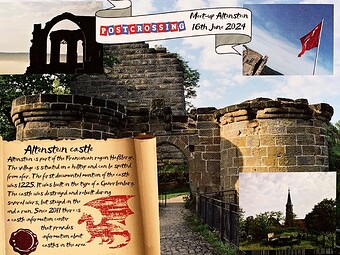 POSTCROSSING
Meetup Altenstein
16th June 2024
Altenstein castle
Altenstein is part of the Franconian region Haßberge.
The village is situated on a hilltop and can be spotted
from afar. The first documented mention of the castle
was 1225. It was built in the type of a Ganerbenburg.
The castle was destroyed and rebuilt during
several wars, but stayed in the
end a ruin. Since 2011 there is
a castle information center
that provides
information about
castles in the area.